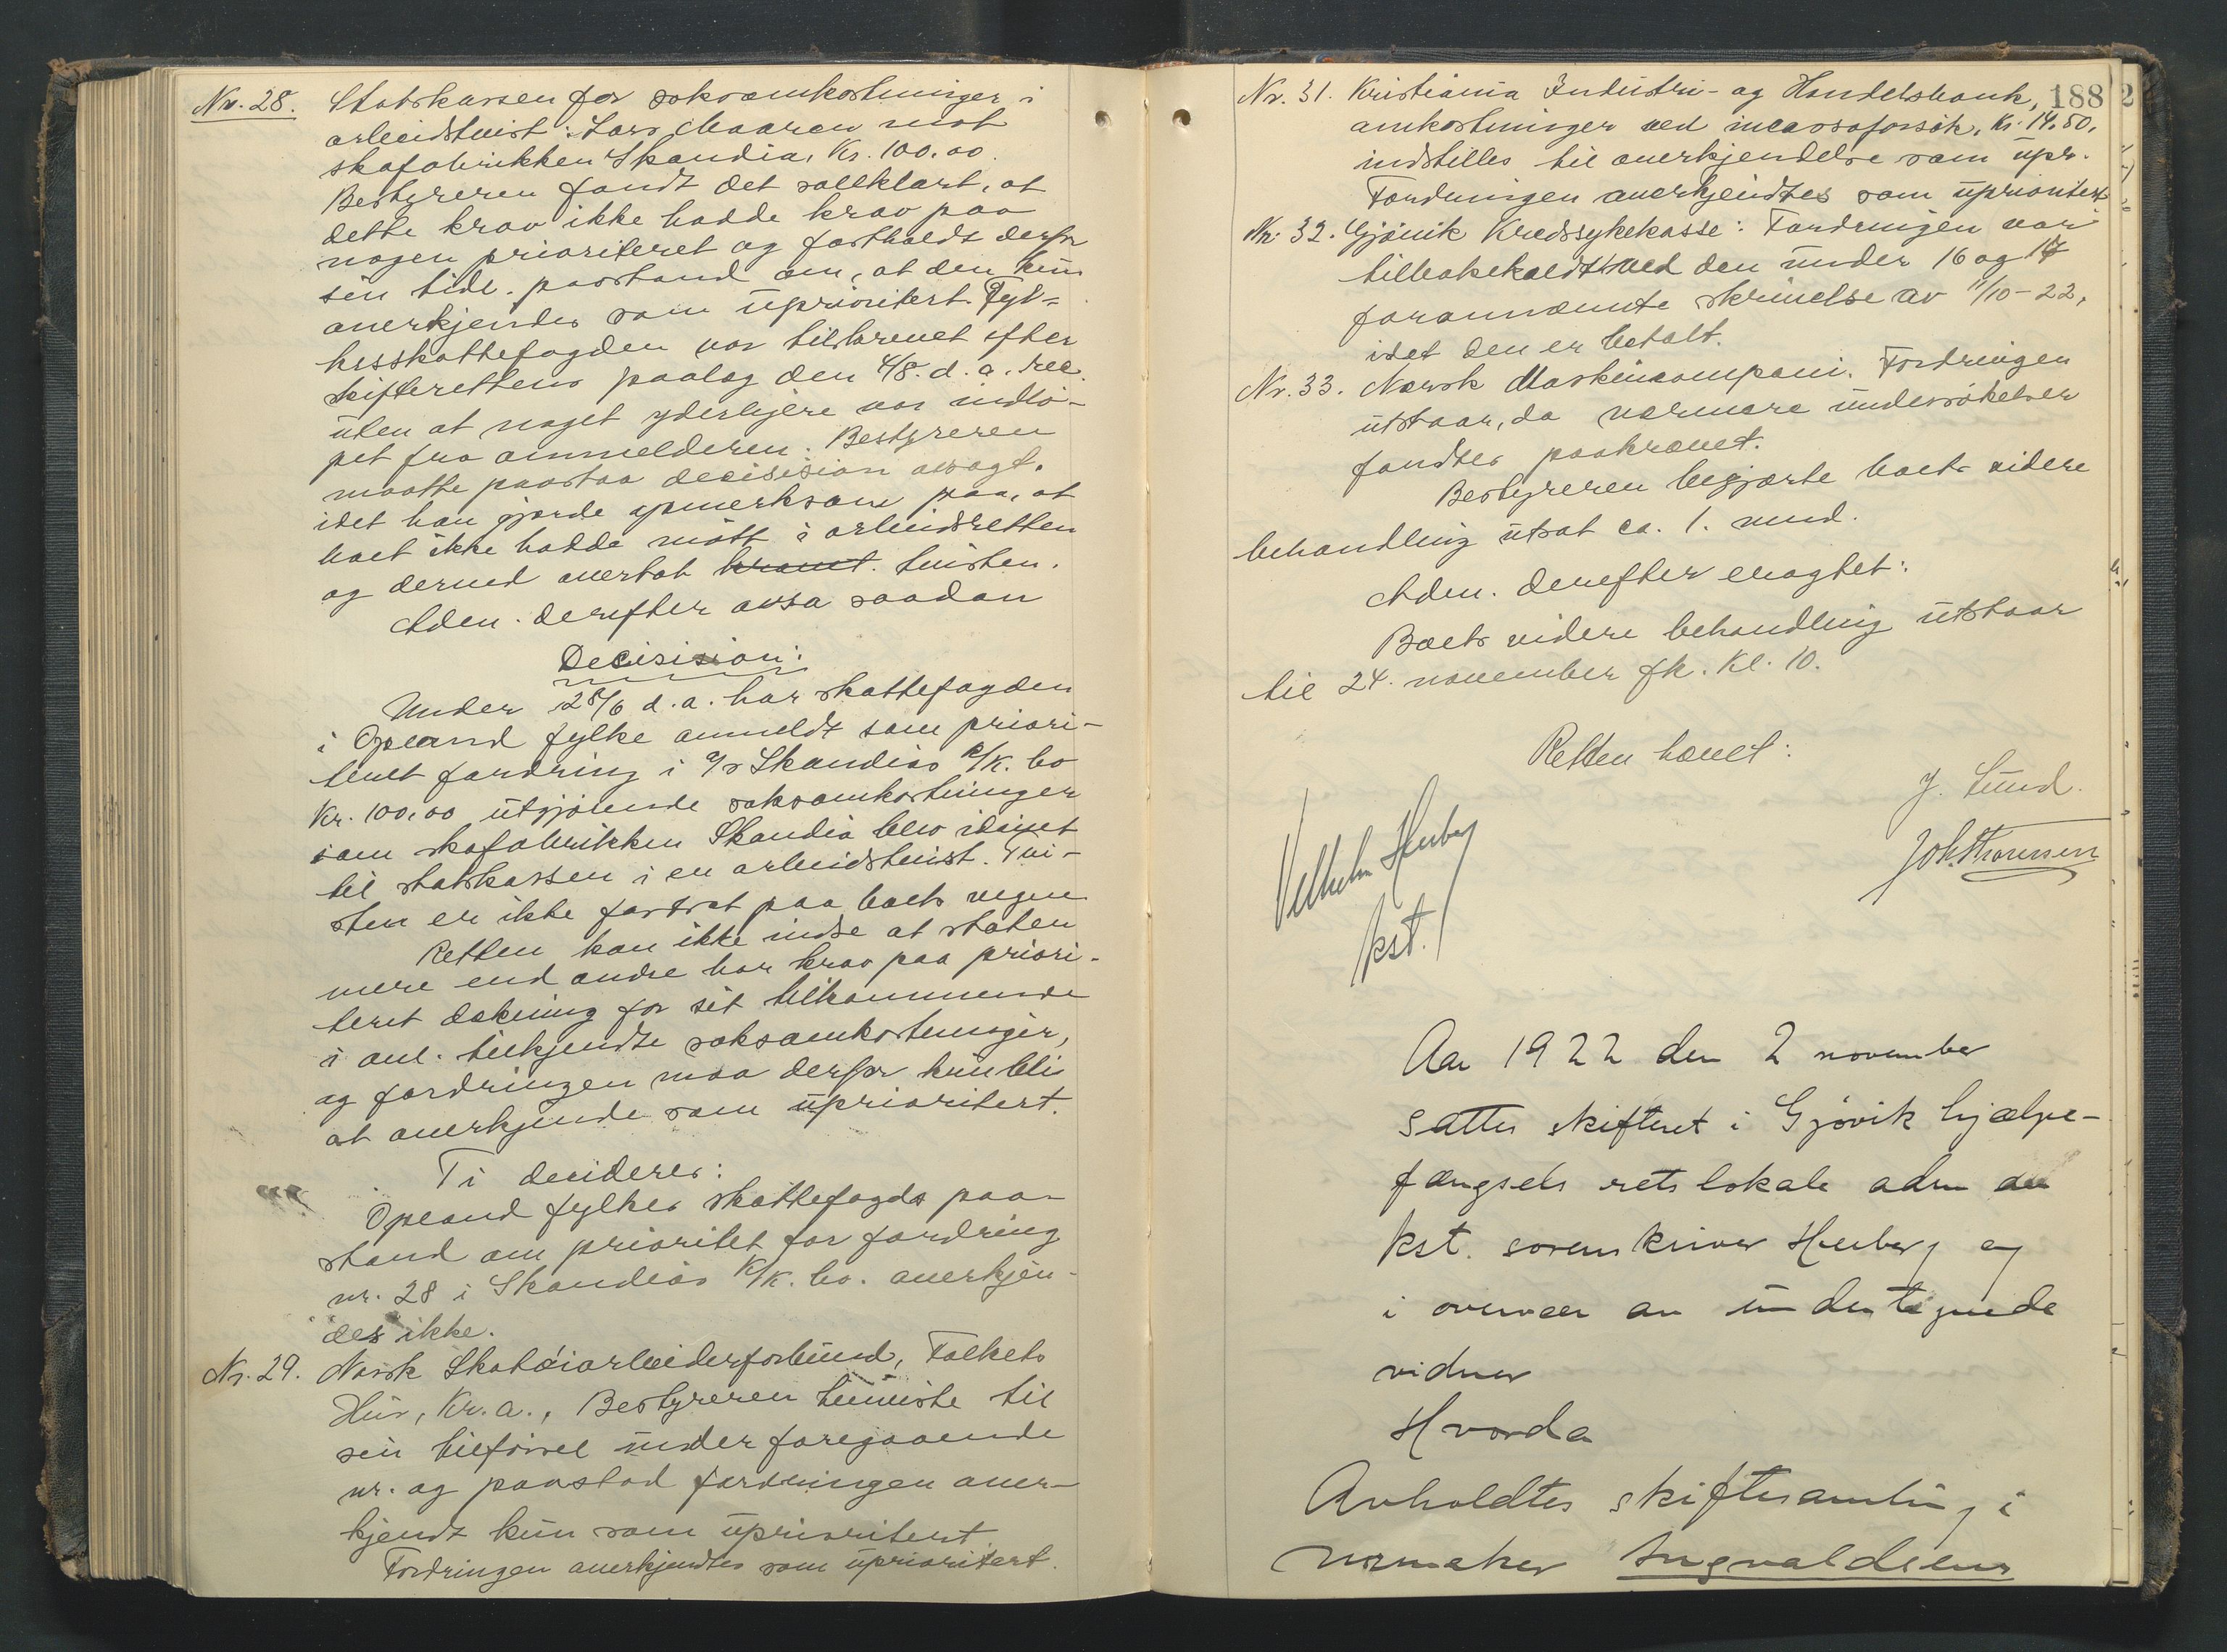 Nr. 28. Statskassen for saksomkostninger i
arbeidstvist: Lars Maaren mot
skofabrikken Skandia, Kr. 100.00.
Bestyreren fandt det solklart, at
dette krav ikke hadde krav paa
nogen prioriteret og fastholdt derfor
sin tidl. paastand om, at den kun
anerkjendes som uprioritert. Fyl-
kesskattefogden var tilskrevet efter
skifterettens paalæg den 4/8. d. a. rec.
uten at noget yderligere var indlø-
pet fra anmelderen. Bestyreren
maatte paastaa decisision avsagt,
idet han gjorde opmerksom paa, at
boet ikke hadde møtt i arbeidsretten
og derved overtat kravet. tvisten.
Adm. derefter avsa saadan
Decisision:
Under 28/6 d. a. har skattefogden
i Opland fylke anmeldt som priori-
teret fordring i A/S Skandias K/K. bo
Kr. 100.00 utgjørende saksomkostninger
som skofabrikken Skandia blev idømt
til statskassen i en arbeidstvist. Tvi-
sten er ikke fortsat paa boets vegne
Retten kan ikke indse at staten
mere end andre har krav paa priori-
teret dækning for sit tilkommende
i anl. tilkjendte saksomkostninger,
og fordringen maa derfor kun bli
at anerkjende som uprioritert.
Ti decideres:
Opland fylkes skattefogds paa-
stand om prioritet for fordring
nr. 28 i Skandias K/K. bo. anerkjen-
des ikke.
Nr. 29. Norsk Skotøiarbeiderforbund, Folkets
Hus, Kr.a., Bestyreren henviste til
sin tilføisel under foregaaende
nr. og paastod fordringen aner-
kjendt kun som uprioritert.
Fordringen anerkjendtes som uprioritert.
188
2
Nr. 31. Kristiania Industri- og Handelsbank,
omkostninger ved incassoforsøk, Kr. 14.50,
indstilles til anerkjendelse som upr.
Fordringen anerkjendtes som uprioritert
Nr. 32. Gjøvik Kredssykekasse: Fordringen var
tilbakekaldt ved den under 16 og 17
forannævnte skrivelse av 11/10-22,
idet den er betalt.
Nr. 33. Norsk Maskincompani. Fordringen
utstaar, da nærmere undersøkelser
fandtes paakrævet.
Bestyreren begjærte boets videre
behandling utsat ca. 1. mnd.
Adm. derefter eragtet:
Boets videre behandling utstaar
til 24. november fk. Kl. 10.
Retten hævet:
J. Lund.
Vilhelm Herberg
kst.
Joh. Thoresen
Aar 1922 den 2 november
sattes skifteret i Gjøvik hjælpe-
fængsels retslokale adm av
kst. sorenskriver Herberg og
i overvær av undertegnede
vidner
Hvorda
Avholdtes skiftesamling i
urmaker Ingvaldsens